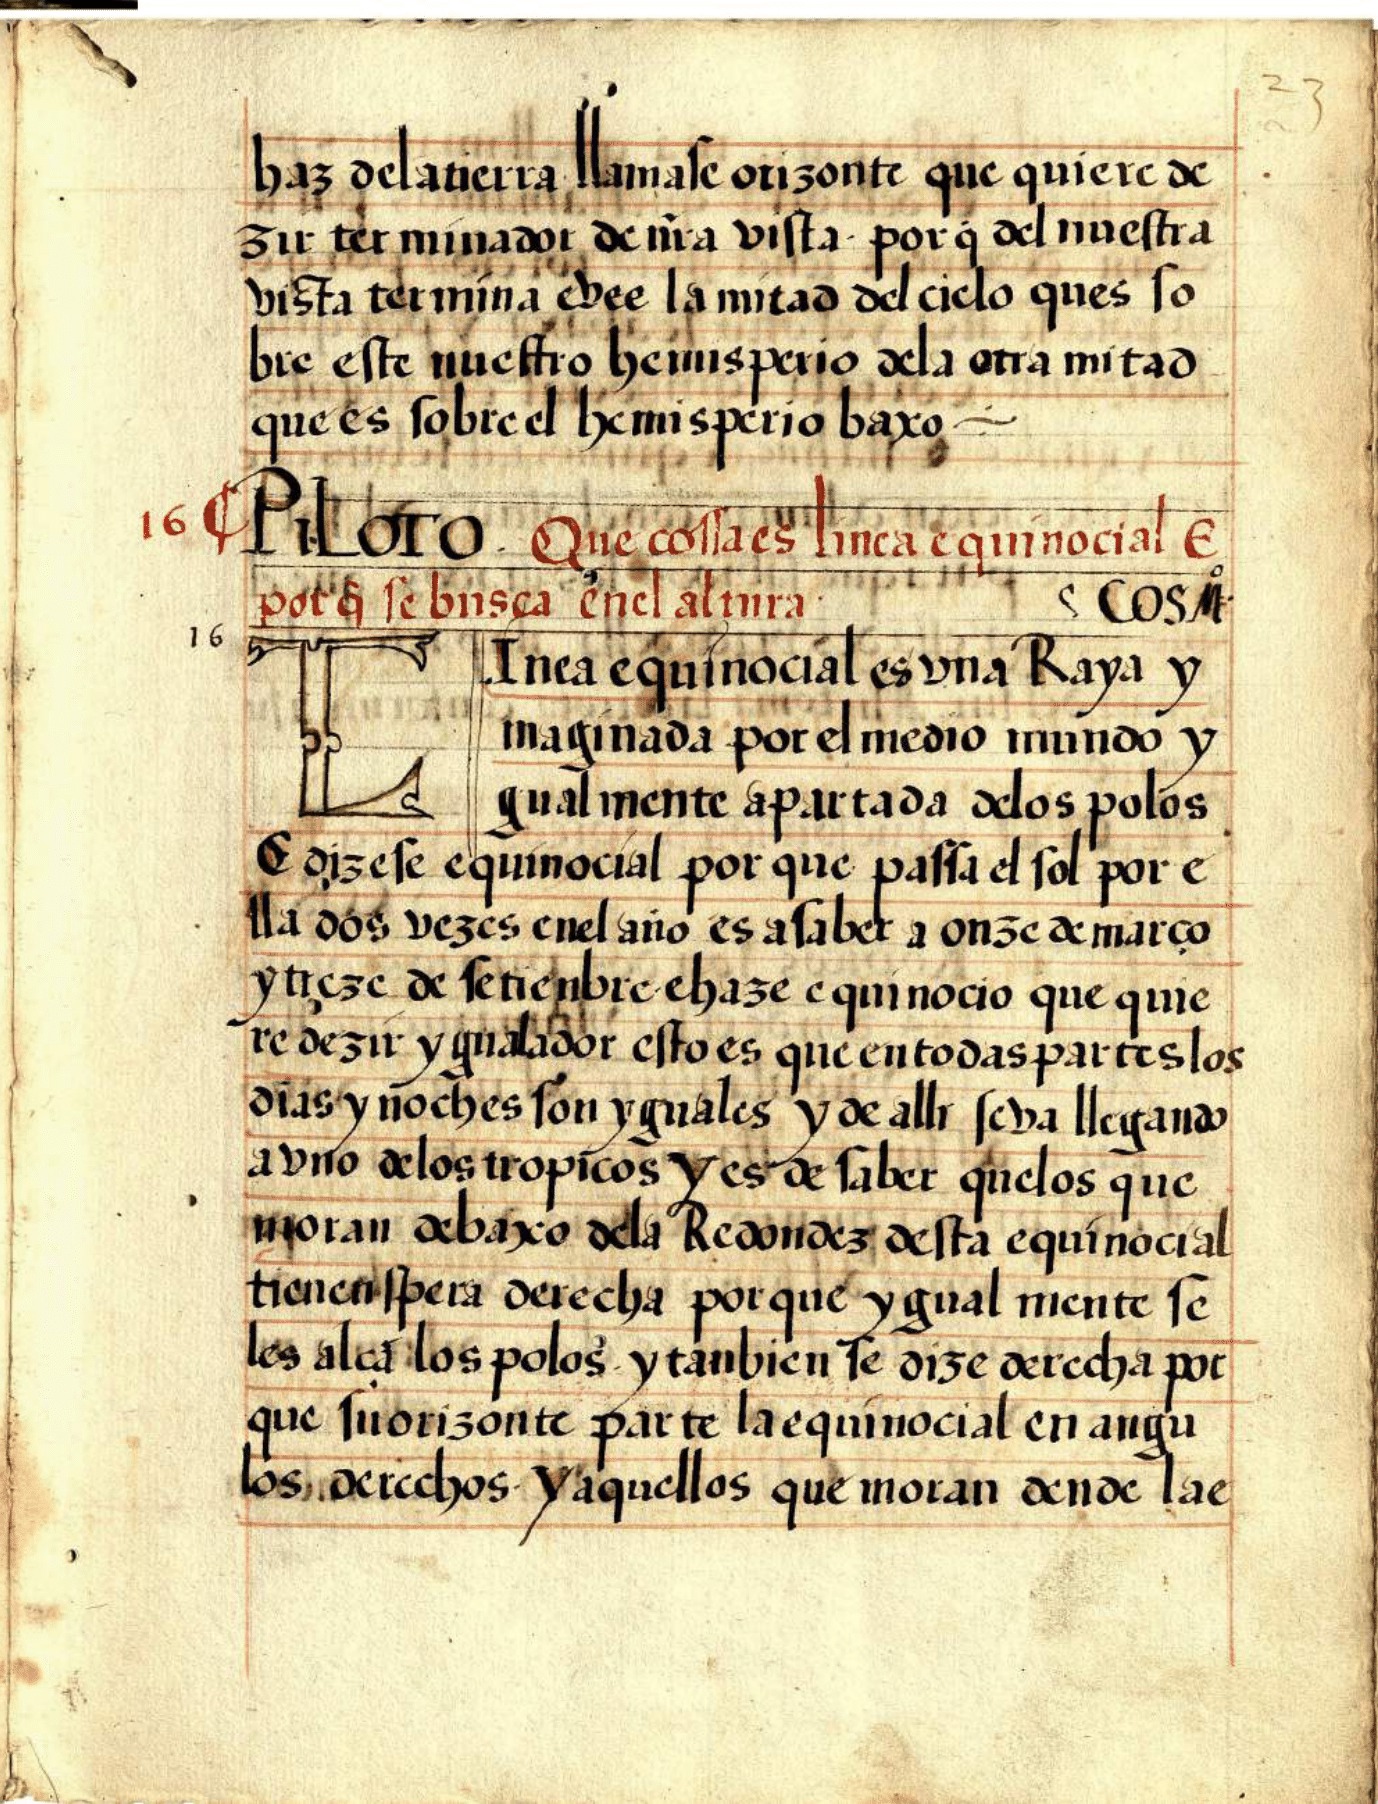 23
haz delatierra llamase orizonte que quiere de
zir terminador de nr̃a vista. por q̃ del nuestra
vista termina e vee la mitad del cielo ques so
bre este nuestro hemisperio dela otra mitad
que es sobre el hemisperio baxo ~
16 ¶ PiLOTO. Que cossa es linea equinocial E
por q̃ se busca enel altura. COSMº
16
LInea equinocial es vna Raya y
maginada por el medio mundo y
gualmente apartada delos polos
E dizese equinocial por que passa el sol por e
lla dos vezes enel año es a saber a onze de março
y treze de setienbre e haze equinocio que quie
re dezir ygualador esto es que en todas partes los
dias y noches son yguales y de alli se va llegando
a vno delos tropicos y es de saber quelos que
moran debaxo dela Redondez desta equinocial
tienen spera derecha porque ygual mente se
les alçã los polos. y tanbien se dize derecha por
que su orizonte parte la equinocial en angu
los derechos. y aquellos que moran dende la e